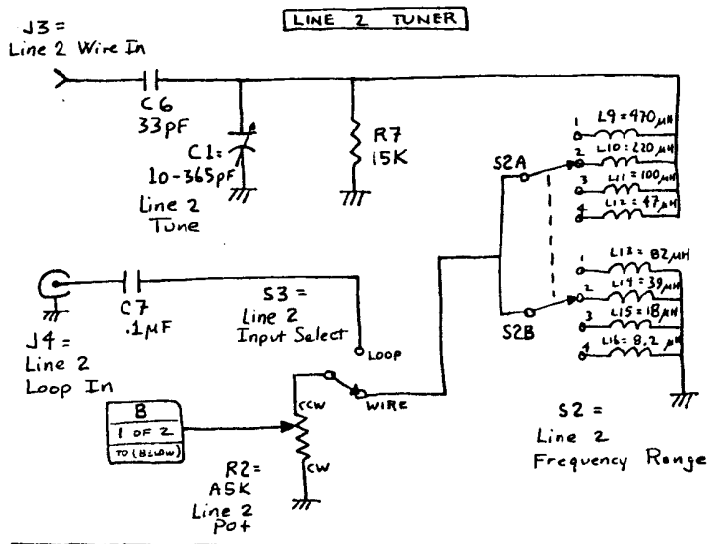 LINE 2 TUNER
J3 =
Line 2 Wire In
C6
33pF
C1=
10-365pF
Line 2
Tune
R7
15K
S2A
1
L9=470μH
2
L10=220μH
3
L11=100μH
4
L12=47μH
S2B
1
L13=82μH
2
L14=39μH
3
L15=18μH
4
L16=8.2μH
S2 =
Line 2
Frequency Range
J4 =
Line 2
Loop In
C7
.1μF
S3 =
Line 2
Input Select
LOOP
WIRE
B
1 OF 2
TO (BELOW)
CCW
CW
R2=
A5K
Line 2
Pot